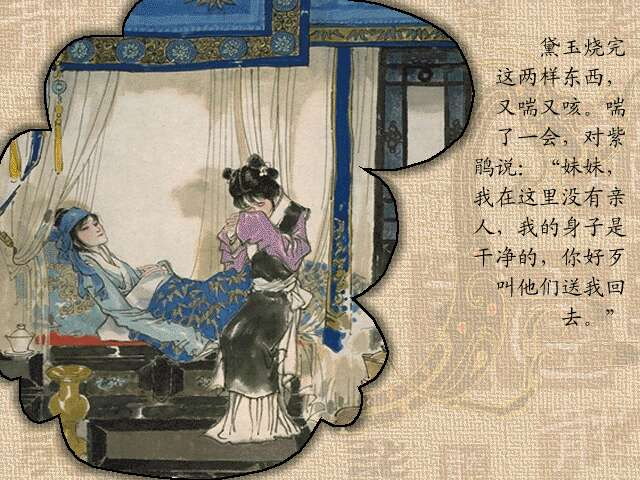 黛玉烧完
这两样东西，
又喘又咳。喘
了一会，对紫
鹃说：“妹妹，
我在这里没有亲
人，我的身子是
干净的，你好歹
叫他们送我回
去。”